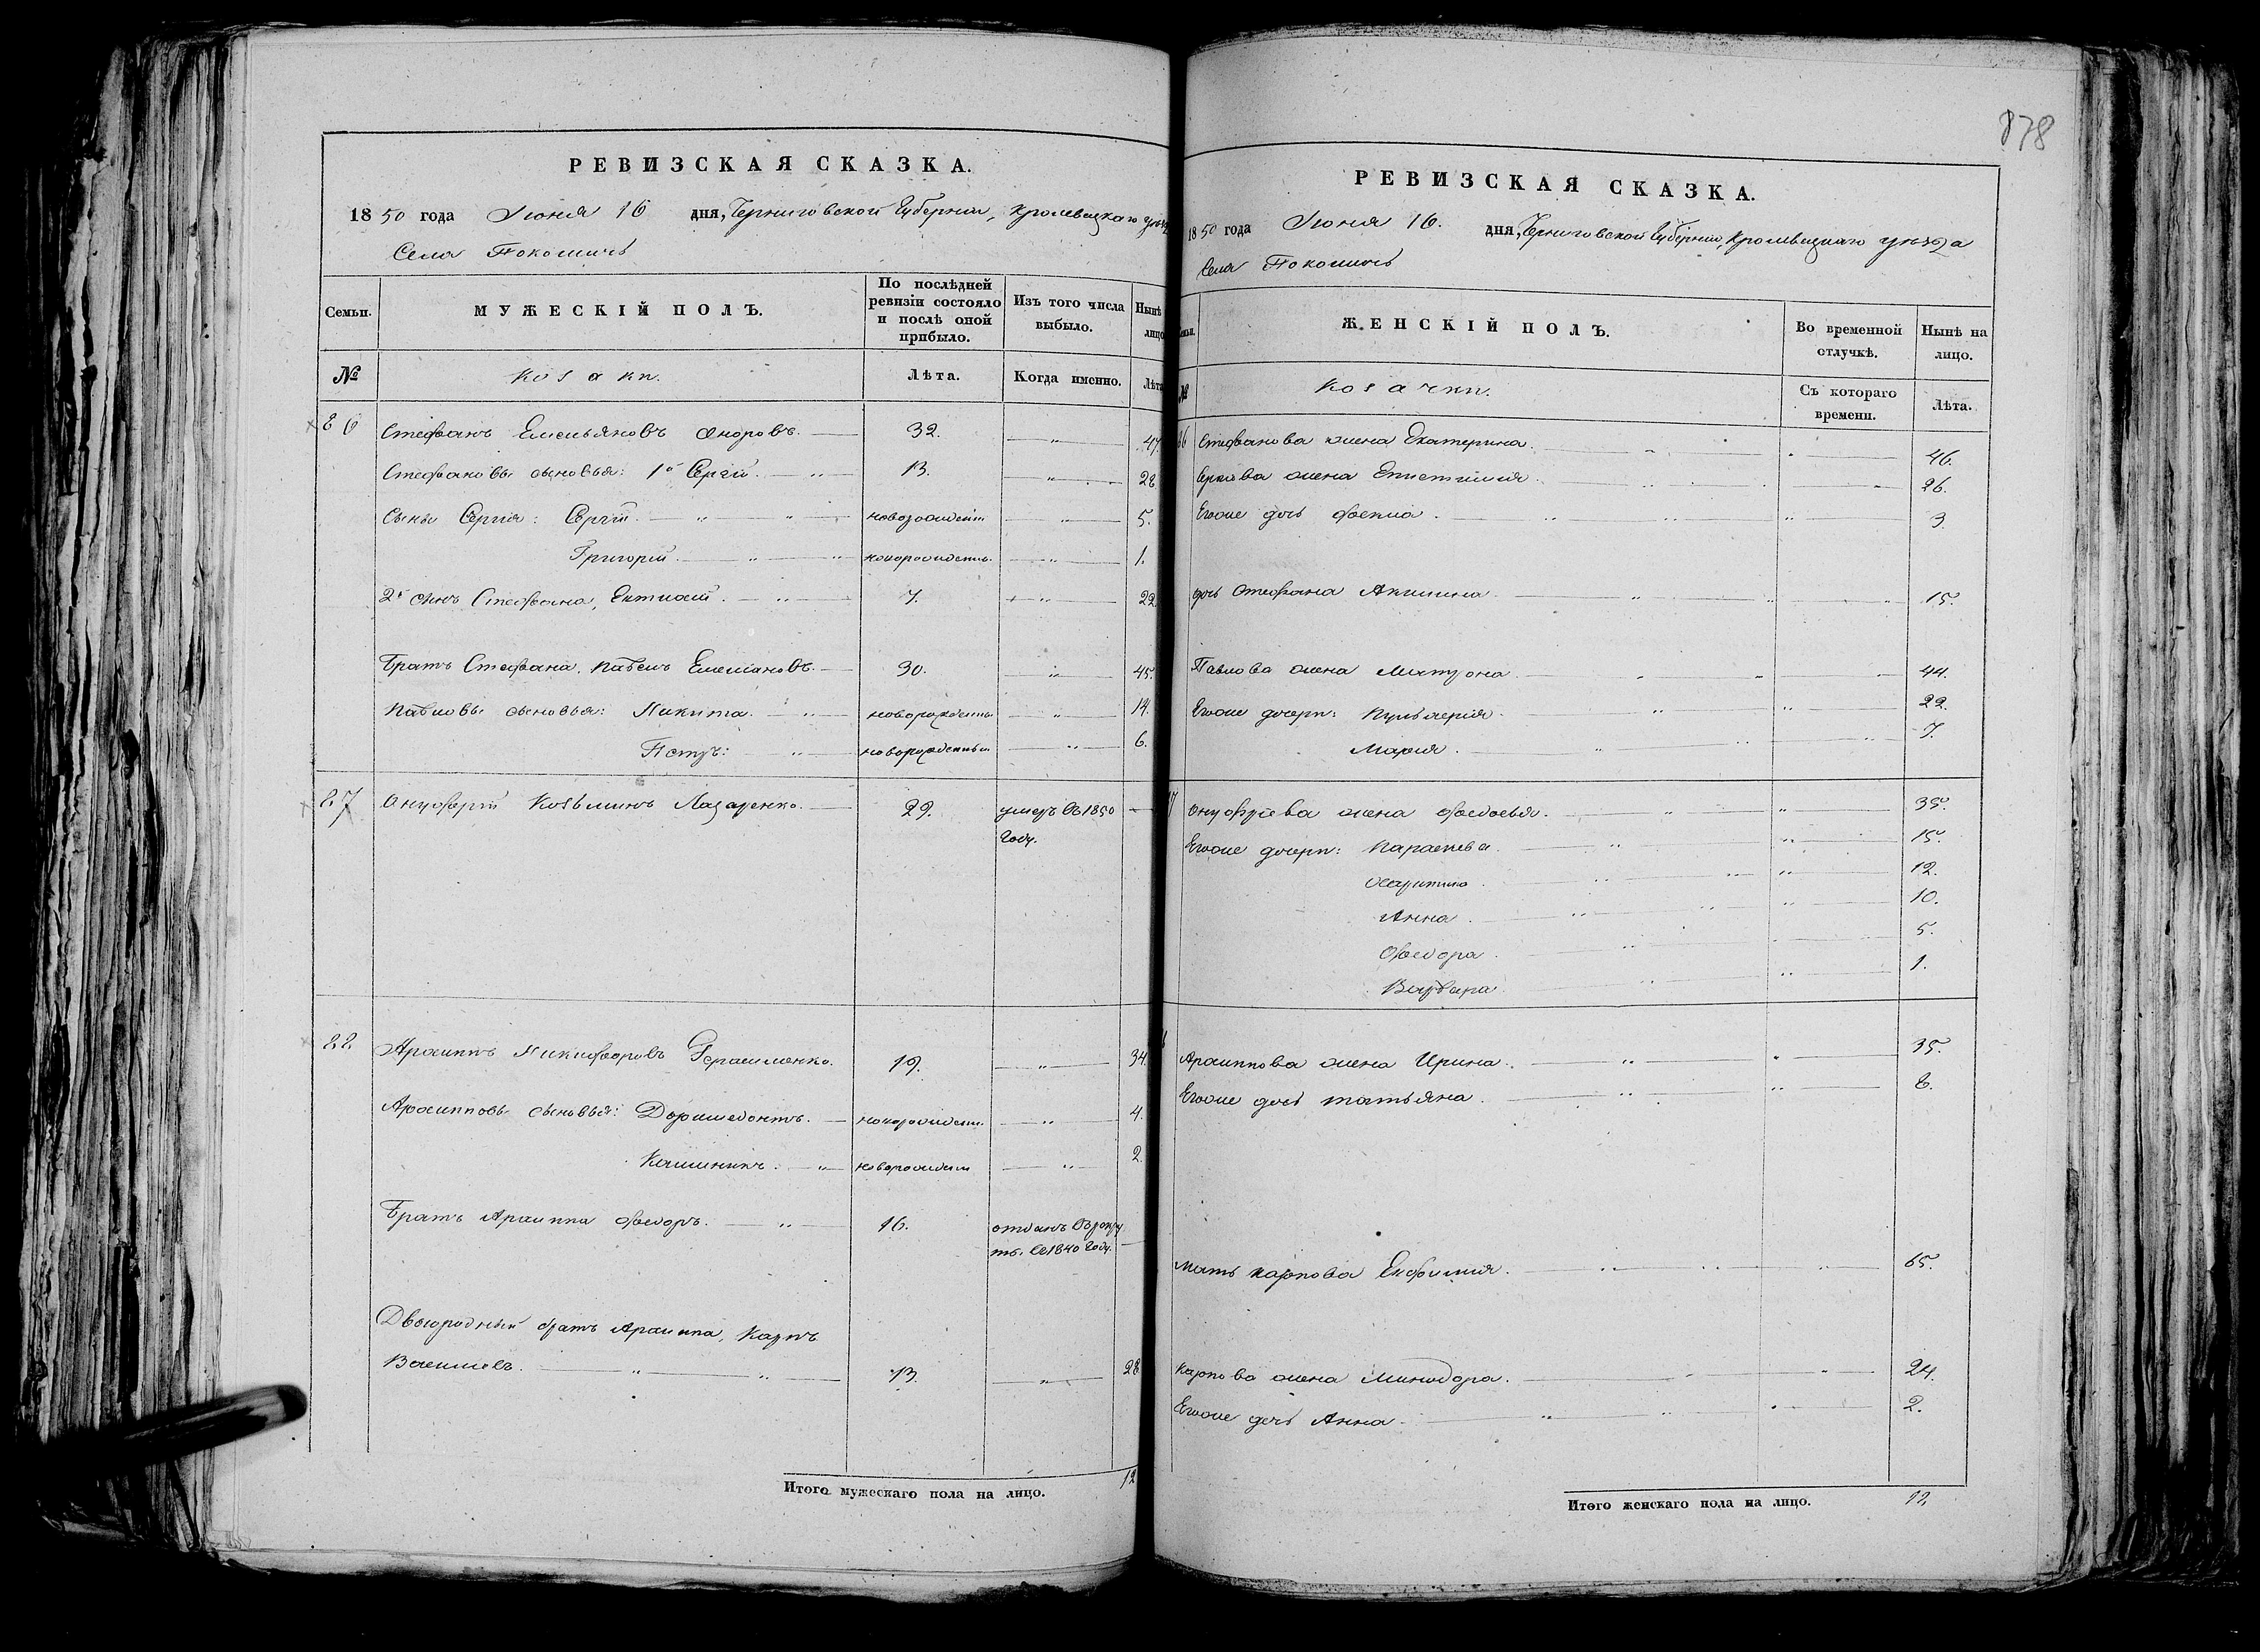 878
РЕВИЗСКАЯ СКАЗКА.
1850 года Іюня 16 дня, Черниговской Губерніи, Кролевецкаго уѣзд
Села Покошичь
Семьи.
МУЖЕСКІЙ ПОЛЪ.
По послѣдней ревизіи состояло и послѣ оной прибыло.
Изъ того числа выбыло.
Нынѣ
лицо
№
Козаки.
Лѣта.
Когда именно.
Лѣта
86 Стефанъ Емельяновъ 32. " 47.
Стефановы сыновья: 1й Сергій. " 13. " 28
Сыны Сергія: Сергій. " " новорожден " 5.
Григорій. " " новорожденъ. " 1.
2й сынъ Стефана, " 7. " 22.
Братъ Стефана, Павелъ Емеліановъ. 30. " 45.
Павловы сыновья: Никита. " новорожденъ " 14.
Петръ: " новорожденъ " 6.
87 Онуфрій Козьминъ Лазаренко. 29. умеръ въ 1850
году.
88 Архиппъ Никифоровъ Герасименко. 19. " 34.
Архипповы сыновья: Доримедонтъ. новорожден. " 4.
Калиникъ. " новорожден " 2.
Братъ Архиппа Федоръ. " 16. отданъ въ рекру
ты. въ 1840 году.
Двоюродный братъ Архиппа, Карпъ
Васильевъ. " " 13. " 28
Итого мужескаго пола на лицо. 12
РЕВИЗСКАЯ СКАЗКА.
1850 года Іюня 16. дня, Черниговской Губерніи, Кролевецкаго уѣзда
Села Покошичь
ЖЕНСКІЙ ПОЛЪ.
Во временной отлучкѣ.
Нынѣ на лицо.
№
Козачки.
Съ котораго времени.
Лѣта.
86 Стефанова жена Екатерина. " " 46.
Сергіева жена Епистимія. " " 26.
Егоже дочь " " 3.
дочь Стефана Акилина " " 15.
Павлова жена Матрона. " " 44.
Егоже дочери: Пульхерія. " " 22.
Марія. " " 7.
Онуфріева жена Федосья. " " 35.
Егоже дочери: Параскева. " " 15.
" " 12.
Анна. " " 10.
Федора. " 5.
Варвара. " " 1.
Архиппова жена Ирина. " " 35.
Егоже дочь Татьяна. " " 8.
Мать Карпова Евфимия. " " 65.
Карпова жена Минодора. " 24.
Егоже дочь Анна. " " 2.
Итого женскаго пола на лицо.